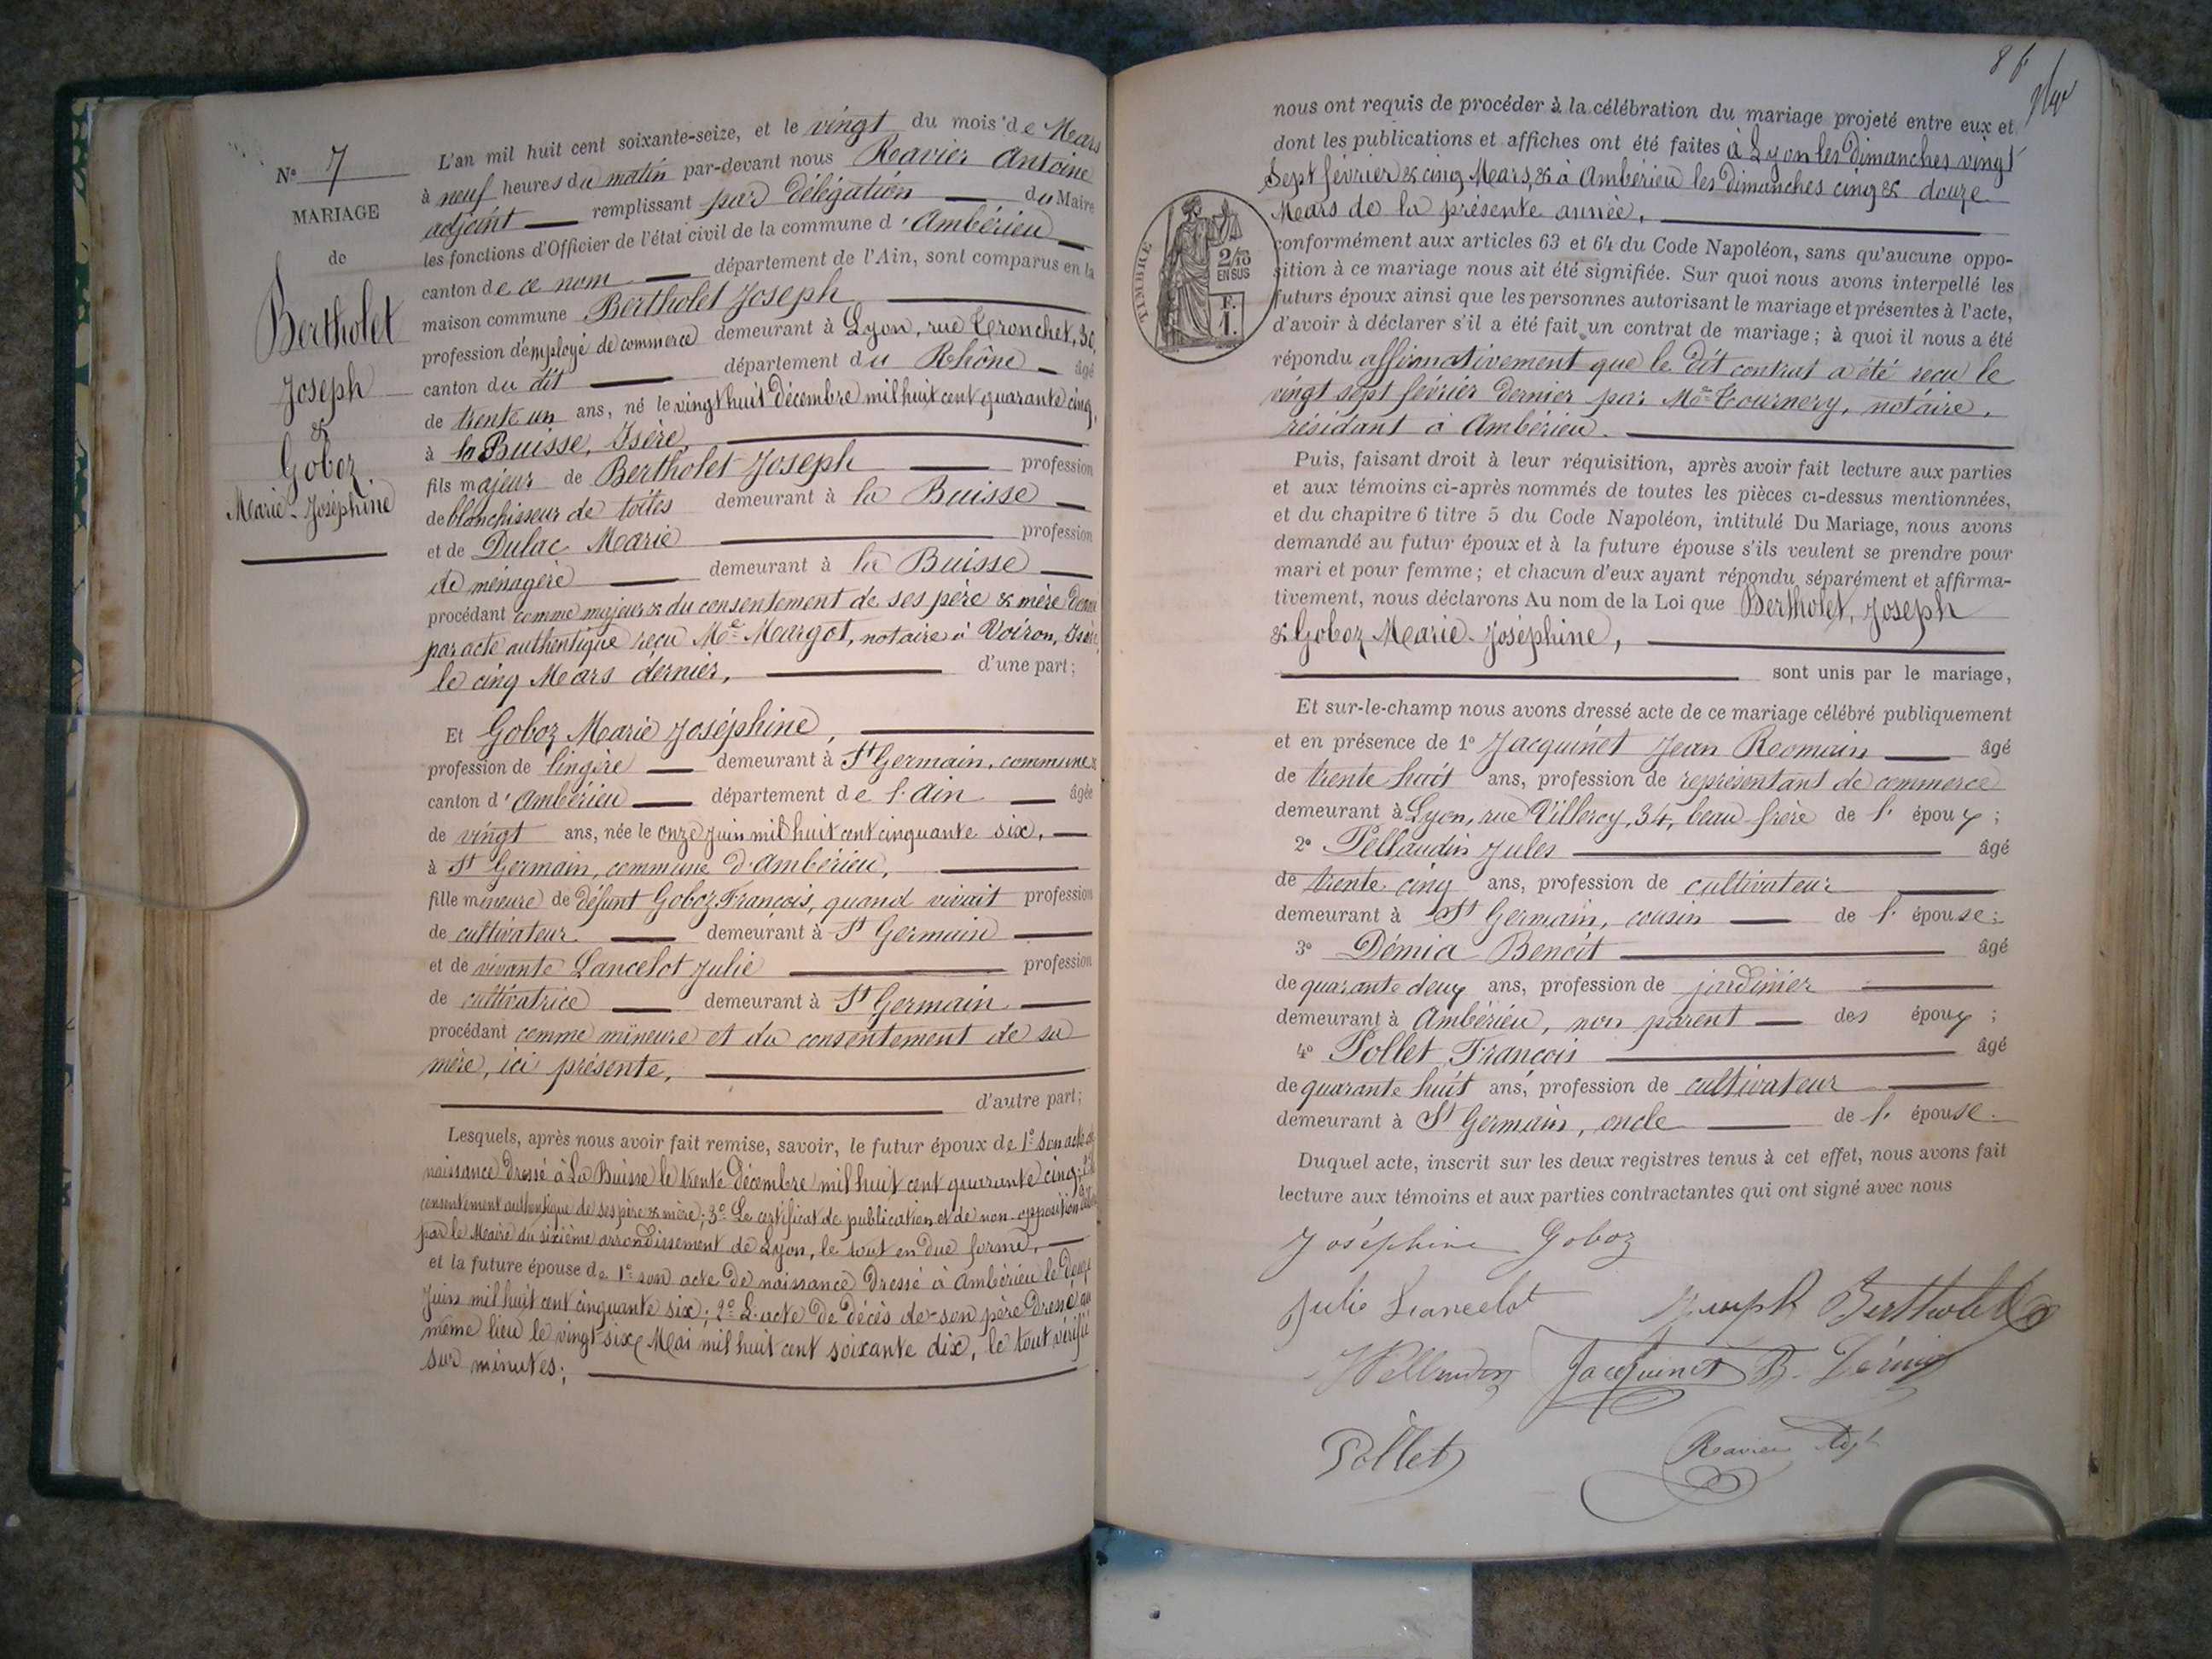 N° 7
MARIAGE
de
Bertholet
Joseph
&
Goboz
Marie-Joséphine
L'an mil huit cent soixante-seize, et le vingt du mois de Mars
à neuf heures du matin par-devant nous Ravier Antoine
adjoint remplissant par délégation du Maire
les fonctions d'Officier de l'état civil de la commune d'Ambérieu
canton de ce nom département de l'Ain, sont comparus en la
maison commune Bertholet Joseph
profession d'employé de commerce demeurant à Lyon, rue Tronchet, 30,
canton du dit département du Rhône âgé
de trente un ans, né le vingt huit décembre mil huit cent quarante cinq,
à la Buisse, Isère,
fils majeur de Bertholet Joseph profession
de blanchisseur de toiles demeurant à la Buisse
et de Dulac Marie profession
de ménagère demeurant à la Buisse
procédant comme majeur & du consentement de ses père & mère
par acte authentique reçu Me Margot, notaire à Voiron, Isère,
le cinq Mars dernier, d'une part;
Et Goboz Marie Joséphine,
profession de lingère demeurant à St Germain, commune &
canton d'Ambérieu département de l'Ain âgée
de vingt ans, née le onze Juin mil huit cent cinquante six,
à St Germain, commune d'Ambérieu,
fille mineure de défunt Goboz François, quand vivait profession
de cultivateur demeurant à St Germain
et de vivante Lancelot Julie profession
de cultivatrice demeurant à St Germain
procédant comme mineure et du consentement de sa
mère, ici présente,
d'autre part;
Lesquels, après nous avoir fait remise, savoir, le futur époux de 1° son acte de
naissance dressé à La Buisse le trente Décembre mil huit cent quarante cinq; 2° le
consentement authentique de ses père & mère; 3° Le certificat de publication et de non-opposition
par le Maire du sixième arrondissement de Lyon, le tout en due forme,
et la future épouse de 1° son acte de naissance dressé à Ambérieu le douze
Juin mil huit cent cinquante six; 2° L'acte de décès de son père dressé au
même lieu le vingt-six Mai mil huit cent soixante dix, le tout vérifié
sur minutes;
nous ont requis de procéder à la célébration du mariage projeté entre eux et
dont les publications et affiches ont été faites à Lyon les Dimanches vingt
Sept février & cinq Mars, & à Ambérieu les dimanches cinq & douze
Mars de la présente année,
TIMBRE
2/10
EN SUS
F.
1.
conformément aux articles 63 et 64 du Code Napoléon, sans qu'aucune oppo-
sition à ce mariage nous ait été signifiée. Sur quoi nous avons interpellé les
futurs époux ainsi que les personnes autorisant le mariage et présentes à l'acte,
d'avoir à déclarer s'il a été fait un contrat de mariage; à quoi il nous a été
répondu affirmativement que le dit contrat a été reçu le
vingt sept février dernier par Me Tournery, notaire,
résidant à Ambérieu.
Puis, faisant droit à leur réquisition, après avoir fait lecture aux parties
et aux témoins ci-après nommés de toutes les pièces ci-dessus mentionnées,
et du chapitre 6 titre 5 du Code Napoléon, intitulé Du Mariage, nous avons
demandé au futur époux et à la future épouse s'ils veulent se prendre pour
mari et pour femme; et chacun d'eux ayant répondu séparément et affirma-
tivement, nous déclarons Au nom de la Loi que Bertholet, Joseph
& Goboz Marie-Joséphine,
sont unis par le mariage,
Et sur-le-champ nous avons dressé acte de ce mariage célébré publiquement
et en présence de 1° Jacquinet Jean Romain âgé
de trente huit ans, profession de représentant de commerce
demeurant à Lyon, rue Villeroy, 34, beau-frère de l'époux;
2° Pellaudin Jules âgé
de trente cinq ans, profession de cultivateur
demeurant à St Germain, cousin de l'épouse;
3° Démia Benoît âgé
de quarante deux ans, profession de jardinier
demeurant à Ambérieu, non parent des époux;
4° Pollet François âgé
de quarante huit ans, profession de cultivateur
demeurant à St Germain, oncle de l'épouse.
Duquel acte, inscrit sur les deux registres tenus à cet effet, nous avons fait
lecture aux témoins et aux parties contractantes qui ont signé avec nous
Joséphine Goboz
Julie Lancelot Joseph Bertholet
JPellaudin Jacquinet B. Démia
Pollet Ravier Adjt